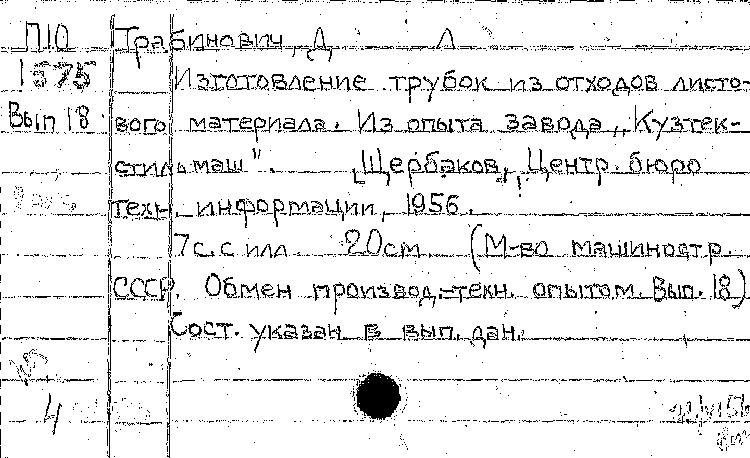 П10 Трабинович, Д Л
1575 Изготовление трубок из отходов листо-
Вып 18 вого материала. Из опыта завода „Кузтек-
стильмаш". Щербаков, Центр. бюро
техн. информации, 1956.
7с. с илл. 20см. (М-во машиностр.
СССР. Обмен производ.-техн. опытом. Вып. 18)
Сост. указан в вып. дан.
4